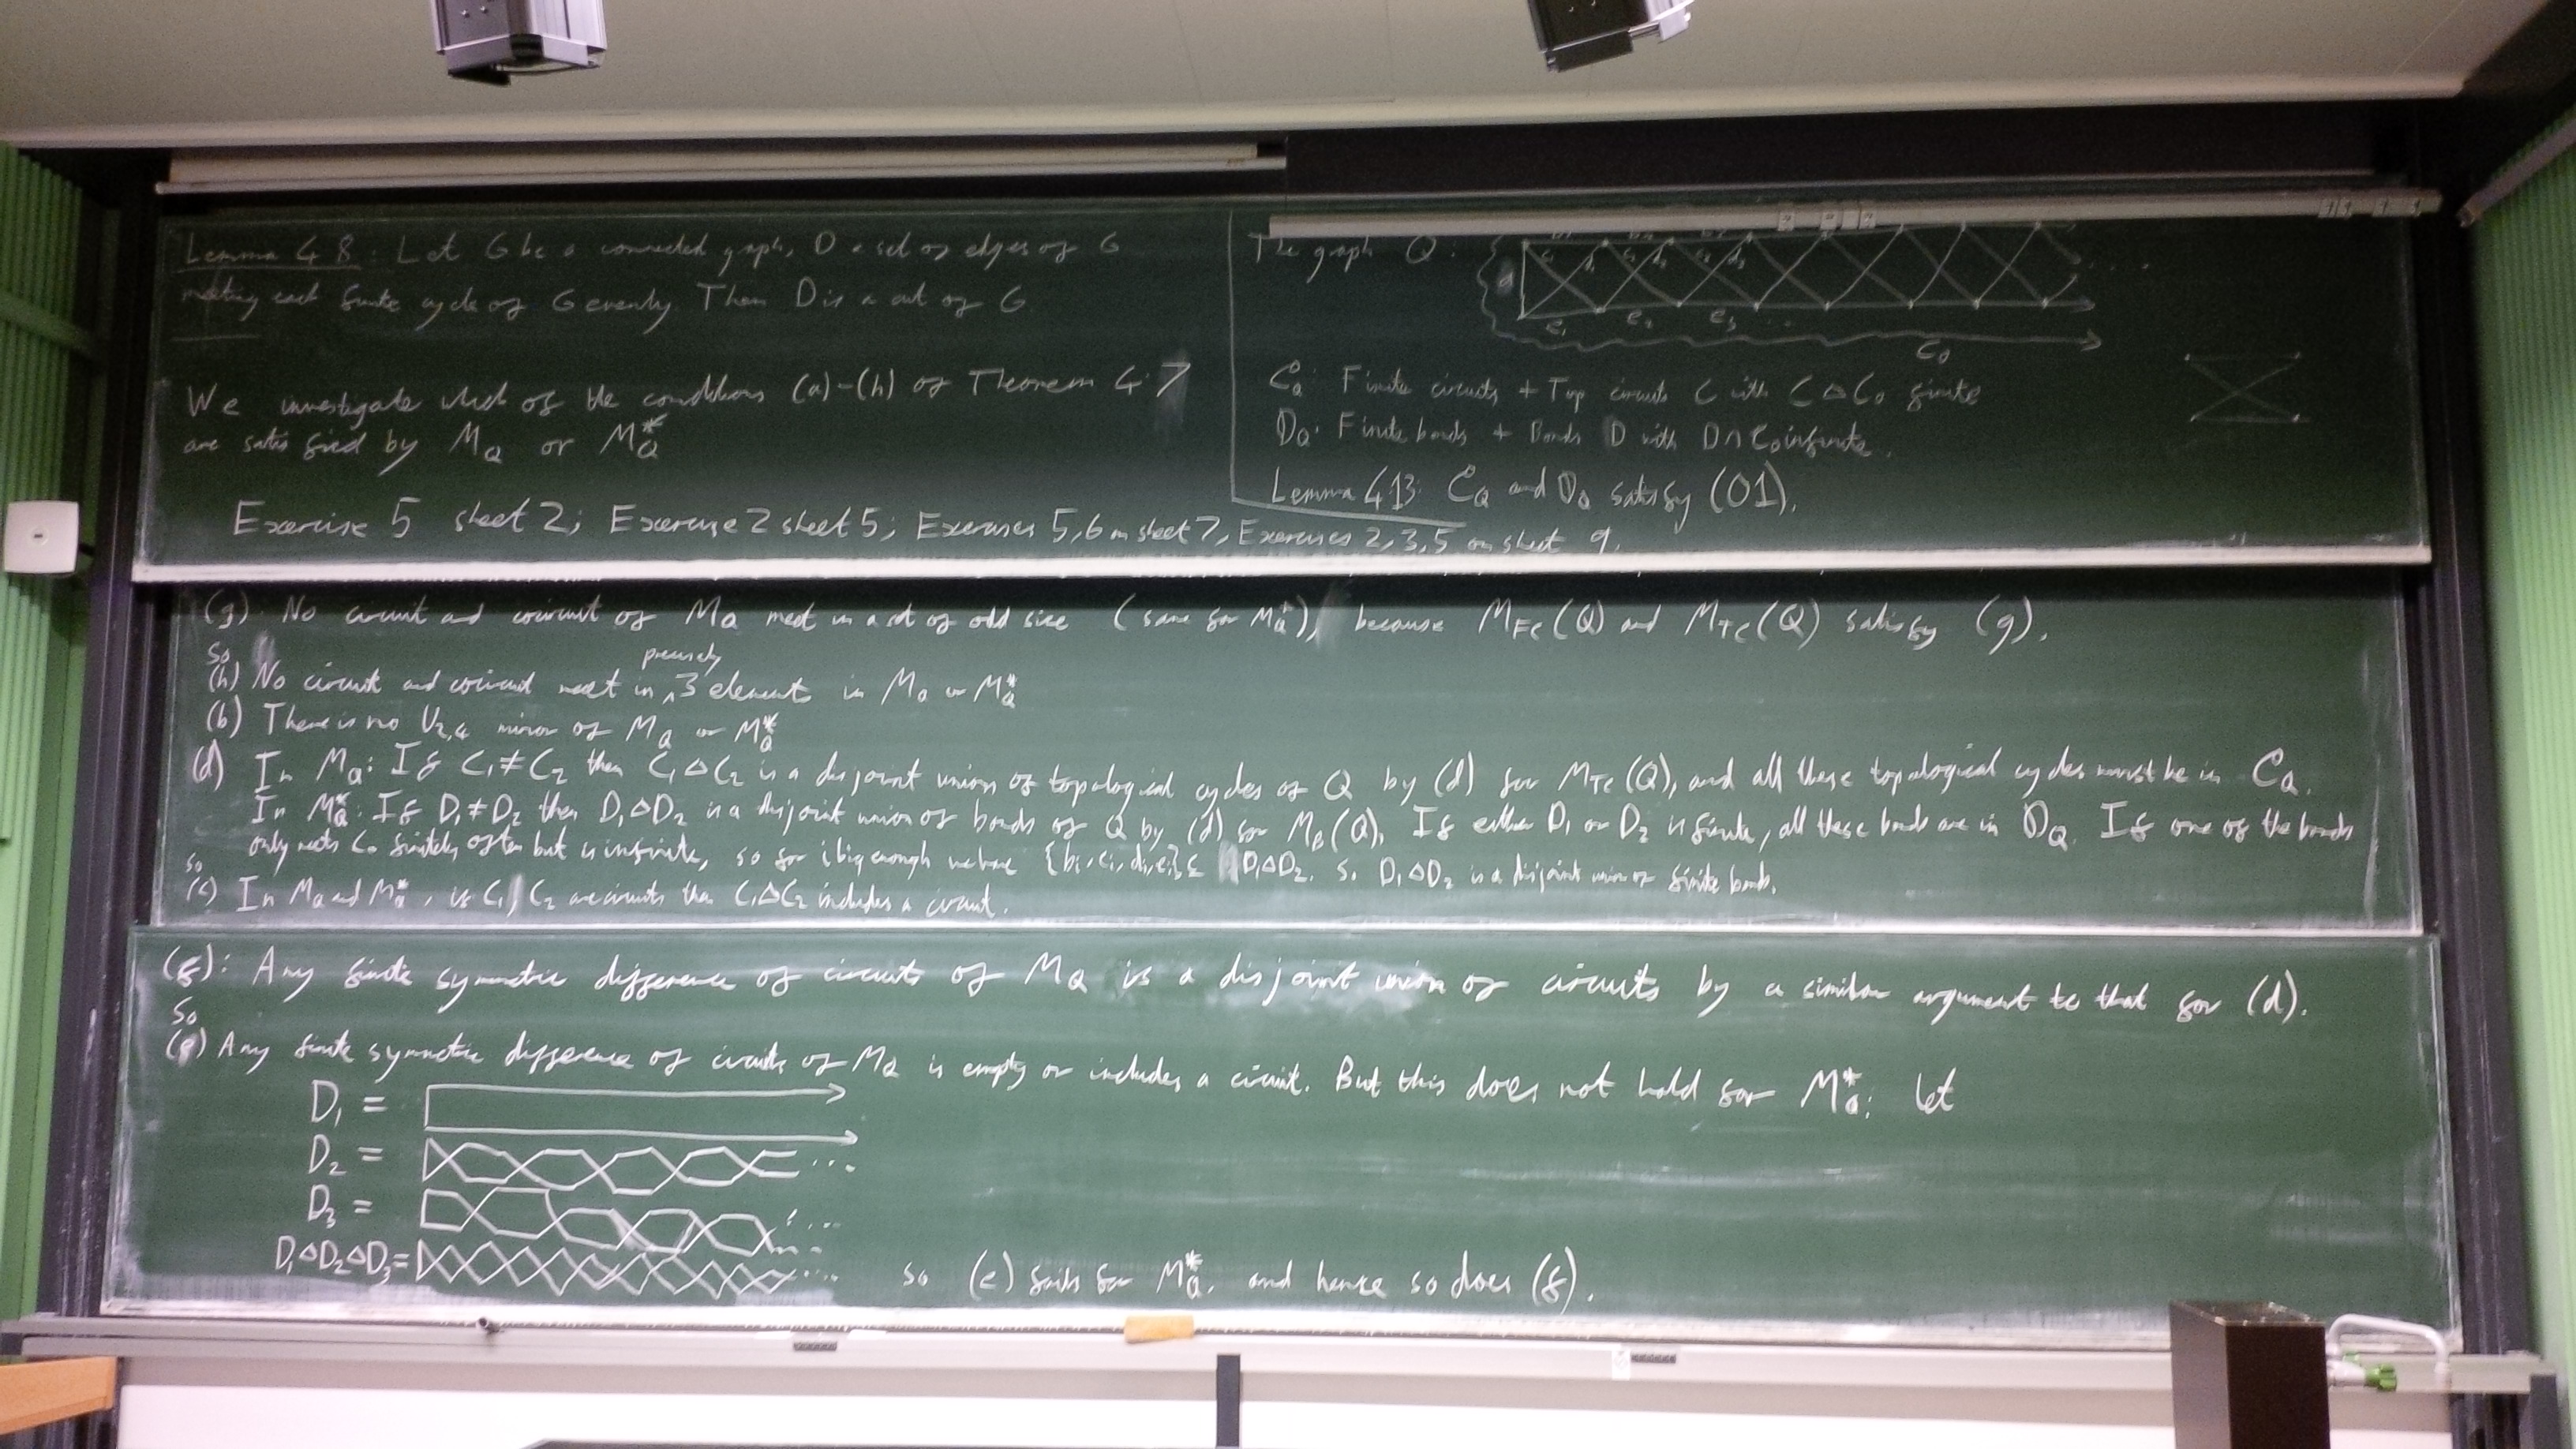 Lemma 4.8: Let G be a connected graph, D a set of edges of G
meeting each finite cycle of G evenly. Then D is a cut of G.
We investigate which of the conditions (a)-(h) of Theorem 4.7
are satisfied by M_Q or M_Q^*
Exercise 5 sheet 2; Exercise 2 sheet 5; Exercises 5,6 on sheet 7, Exercises 2,3,5 on sheet 9.
The graph Q:
a
c_1 d_1 c_2 d_2 c_3 d_3
e_1 e_2 e_3 ...
C_0
C_Q: Finite circuits + Top circuits C with C △ C_0 finite
D_Q: Finite bonds + Bonds D with D ∩ C_0 infinite.
Lemma 4.13: C_Q and D_Q satisfy (O1).
(g): No circuit and cocircuit of M_Q meet in a set of odd size (same for M_Q^*), because M_FC(Q) and M_TC(Q) satisfy (g).
So
(h) No circuit and cocircuit meet in precisely 3 elements in M_Q or M_Q^*
(b) There is no U_2,4 minor of M_Q or M_Q^*
(d) In M_Q: If C_1 ≠ C_2 then C_1 △ C_2 is a disjoint union of topological cycles of Q by (d) for M_TC(Q), and all these topological cycles must be in C_Q.
In M_Q^*: If D_1 ≠ D_2 then D_1 △ D_2 is a disjoint union of bonds of Q by (d) for M_B(Q). If either D_1 or D_2 is finite, all these bonds are in D_Q. If one of the bonds
only meets C_0 finitely often but is infinite, so for i big enough we have {b_i, c_i, d_i, e_i} ⊆ D_1 △ D_2. So D_1 △ D_2 is a disjoint union of finite bonds.
so
(c) In M_Q and M_Q^*, if C_1, C_2 are circuits then C_1 △ C_2 includes a circuit.
(f): Any finite symmetric difference of circuits of M_Q is a disjoint union of circuits by a similar argument to that for (d).
So
(e) Any finite symmetric difference of circuits of M_Q is empty or includes a circuit. But this does not hold for M_Q^*: let
D_1 =
D_2 = ...
D_3 = ...
D_1 △ D_2 △ D_3 = ... so (e) fails for M_Q^*, and hence so does (f).